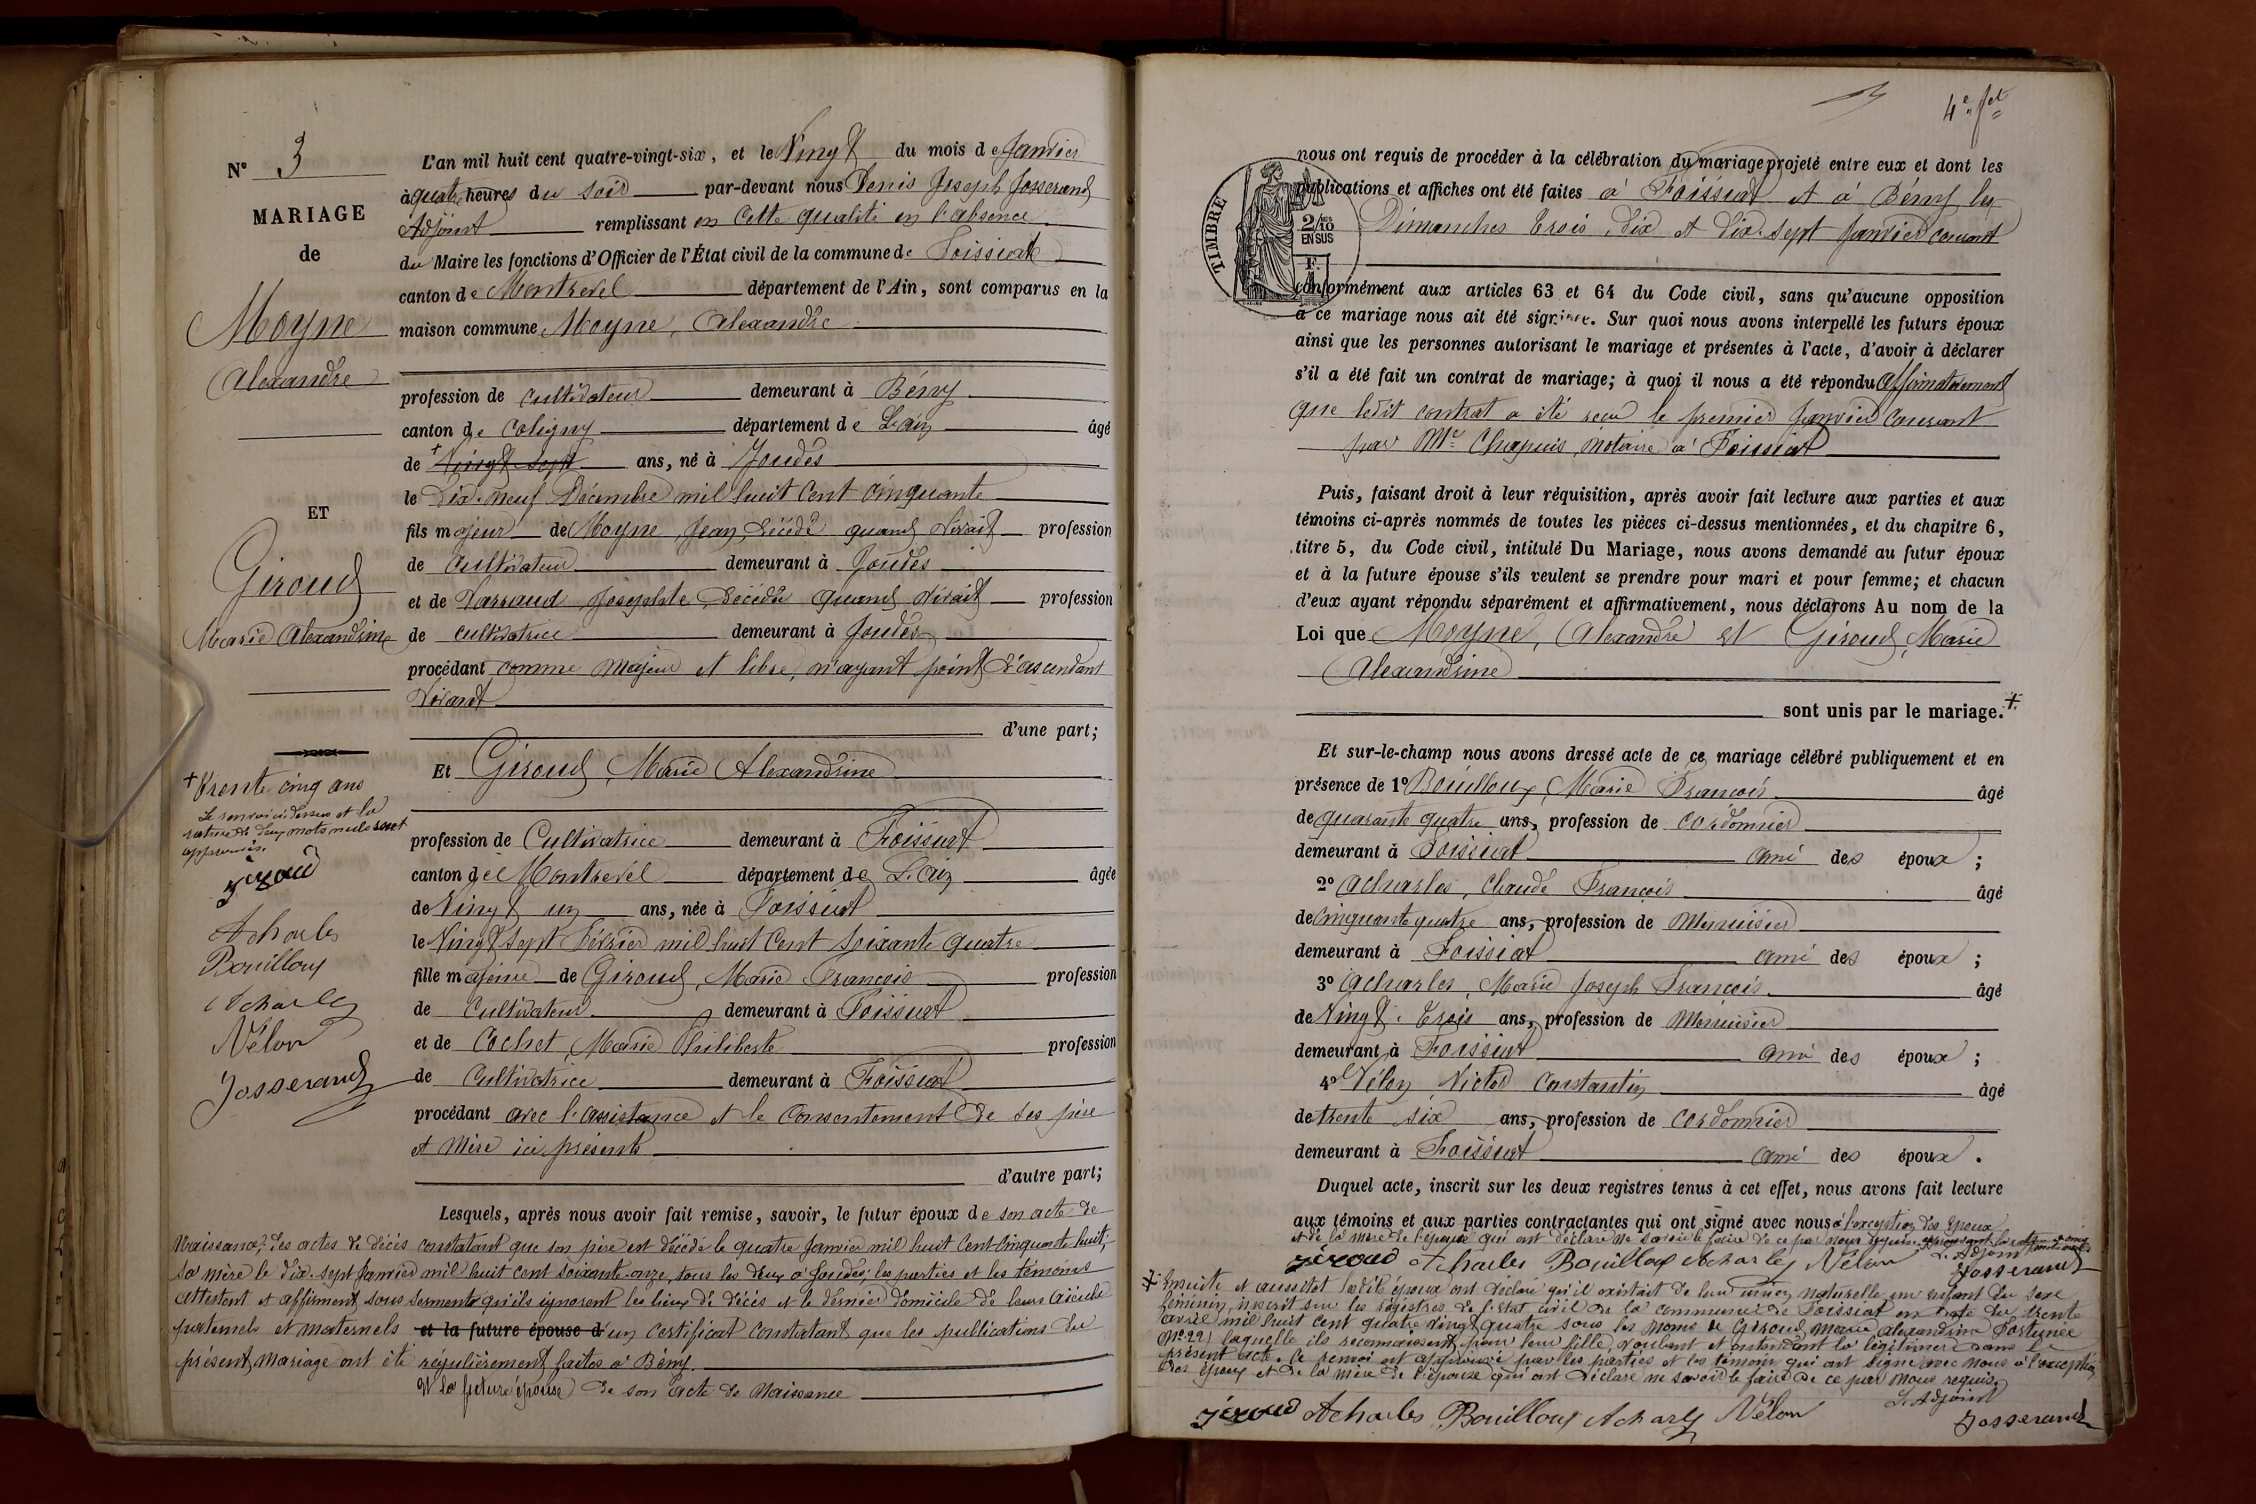 N° 3
MARIAGE
de
Moyne
Alexandre
ET
Giroud
Marie Alexandrine
+ trente cinq ans
Le renvoi ci-dessus et la
rature de deux mots nuls sont
approuvés.
Jéroud
Acharles
Bouilloux
Acharles
Vélon
Josserand
L'an mil huit cent quatre-vingt-six, et le Vingt du mois de Janvier
à quatre heures du soir par-devant nous Denis Joseph Josserand
Adjoint remplissant en cette qualité en l'absence
du Maire les fonctions d'Officier de l'État civil de la commune de Foissiat
canton de Montrevel département de l'Ain, sont comparus en la
maison commune Moyne, Alexandre
profession de cultivateur demeurant à Bény
canton de Coligny département de L'Ain âgé
de + Vingt sept ans, né à Joudes
le Dix-neuf Décembre mil huit cent cinquante
fils majeur de Moyne, Jean, décédé quand vivait profession
de Cultivateur demeurant à Joudes
et de Josephte, décédée quand vivait profession
de cultivatrice demeurant à Joudes
procédant comme majeur et libre, n'ayant point d'ascendant
vivant
d'une part;
Et Giroud, Marie Alexandrine
profession de Cultivatrice demeurant à Foissiat
canton de Montrevel département de L'Ain âgée
de Vingt un ans, née à Foissiat
le Vingt sept Février mil huit cent soixante quatre
fille majeure de Giroud, Marie François profession
de Cultivateur demeurant à Foissiat
et de Cochet, Marie Philiberte profession
de Cultivatrice demeurant à Foissiat
procédant avec l'assistance et le consentement de ses père
et mère ici présents
d'autre part;
Lesquels, après nous avoir fait remise, savoir, le futur époux de son acte de
Naissance, des actes de décès constatant que son père est décédé le quatre Janvier mil huit cent cinquante huit;
sa mère le dix-sept Janvier mil huit cent soixante-onze, tous les deux à Joudes; les parties et les témoins
attestent et affirment sous serment qu'ils ignorent les lieux de décès et le dernier domicile de leurs aïeuls
paternels et maternels et la future épouse d'un certificat constatant que les publications du
présent mariage ont été régulièrement faites à Bény.
Et la future épouse de son acte de Naissance
4e fet
TIMBRE
2/10 EN SUS
nous ont requis de procéder à la célébration du mariage projeté entre eux et dont les
publications et affiches ont été faites à Foissiat et à Bény les
Dimanches trois, dix et dix-sept Janvier courant
conformément aux articles 63 et 64 du Code civil, sans qu'aucune opposition
à ce mariage nous ait été signifiée. Sur quoi nous avons interpellé les futurs époux
ainsi que les personnes autorisant le mariage et présentes à l'acte, d'avoir à déclarer
s'il a été fait un contrat de mariage; à quoi il nous a été répondu affirmativement
que ledit contrat a été reçu le premier Janvier courant
par Me Chapuis, notaire à Foissiat
Puis, faisant droit à leur réquisition, après avoir fait lecture aux parties et aux
témoins ci-après nommés de toutes les pièces ci-dessus mentionnées, et du chapitre 6,
titre 5, du Code civil, intitulé Du Mariage, nous avons demandé au futur époux
et à la future épouse s'ils veulent se prendre pour mari et pour femme; et chacun
d'eux ayant répondu séparément et affirmativement, nous déclarons Au nom de la
Loi que Moyne, Alexandre et Giroud, Marie
Alexandrine
sont unis par le mariage. +
Et sur-le-champ nous avons dressé acte de ce mariage célébré publiquement et en
présence de 1° Bouilloux, Marie François âgé
de quarante quatre ans, profession de cordonnier
demeurant à Foissiat ami des époux;
2° Acharles, Claude François âgé
de cinquante quatre ans, profession de Menuisier
demeurant à Foissiat ami des époux;
3° Acharles, Marie Joseph François âgé
de Vingt-trois ans, profession de Menuisier
demeurant à Foissiat ami des époux;
4° Vélon Victor Constantin âgé
de trente six ans, profession de cordonnier
demeurant à Foissiat ami des époux.
Duquel acte, inscrit sur les deux registres tenus à cet effet, nous avons fait lecture
aux témoins et aux parties contractantes qui ont signé avec nous à l'exception des époux
et de la mère de l'épouse qui ont déclaré ne savoir le faire de ce par nous requis.
L'Adjoint
Jéroud Acharles Bouilloux Acharles Vélon Josserand
+ Ensuite et aussitôt lesdits époux ont déclaré qu'il existait de leur union naturelle un enfant du sexe
féminin, inscrit sur les registres de l'état civil de la commune de Foissiat en date du trente
avril mil huit cent quatre vingt quatre sous les noms de Giroud, Marie Alexandrine Fortunée
N° 22, laquelle ils reconnaissent pour leur fille, voulant et entendant la légitimer dans le
présent acte. Ce renvoi est approuvé par les parties et les témoins qui ont signé avec nous à l'exception
des époux et de la mère de l'épouse qui ont déclaré ne savoir le faire de ce par nous requis.
L'Adjoint
Jéroud Acharles Bouilloux Acharles Vélon Josserand